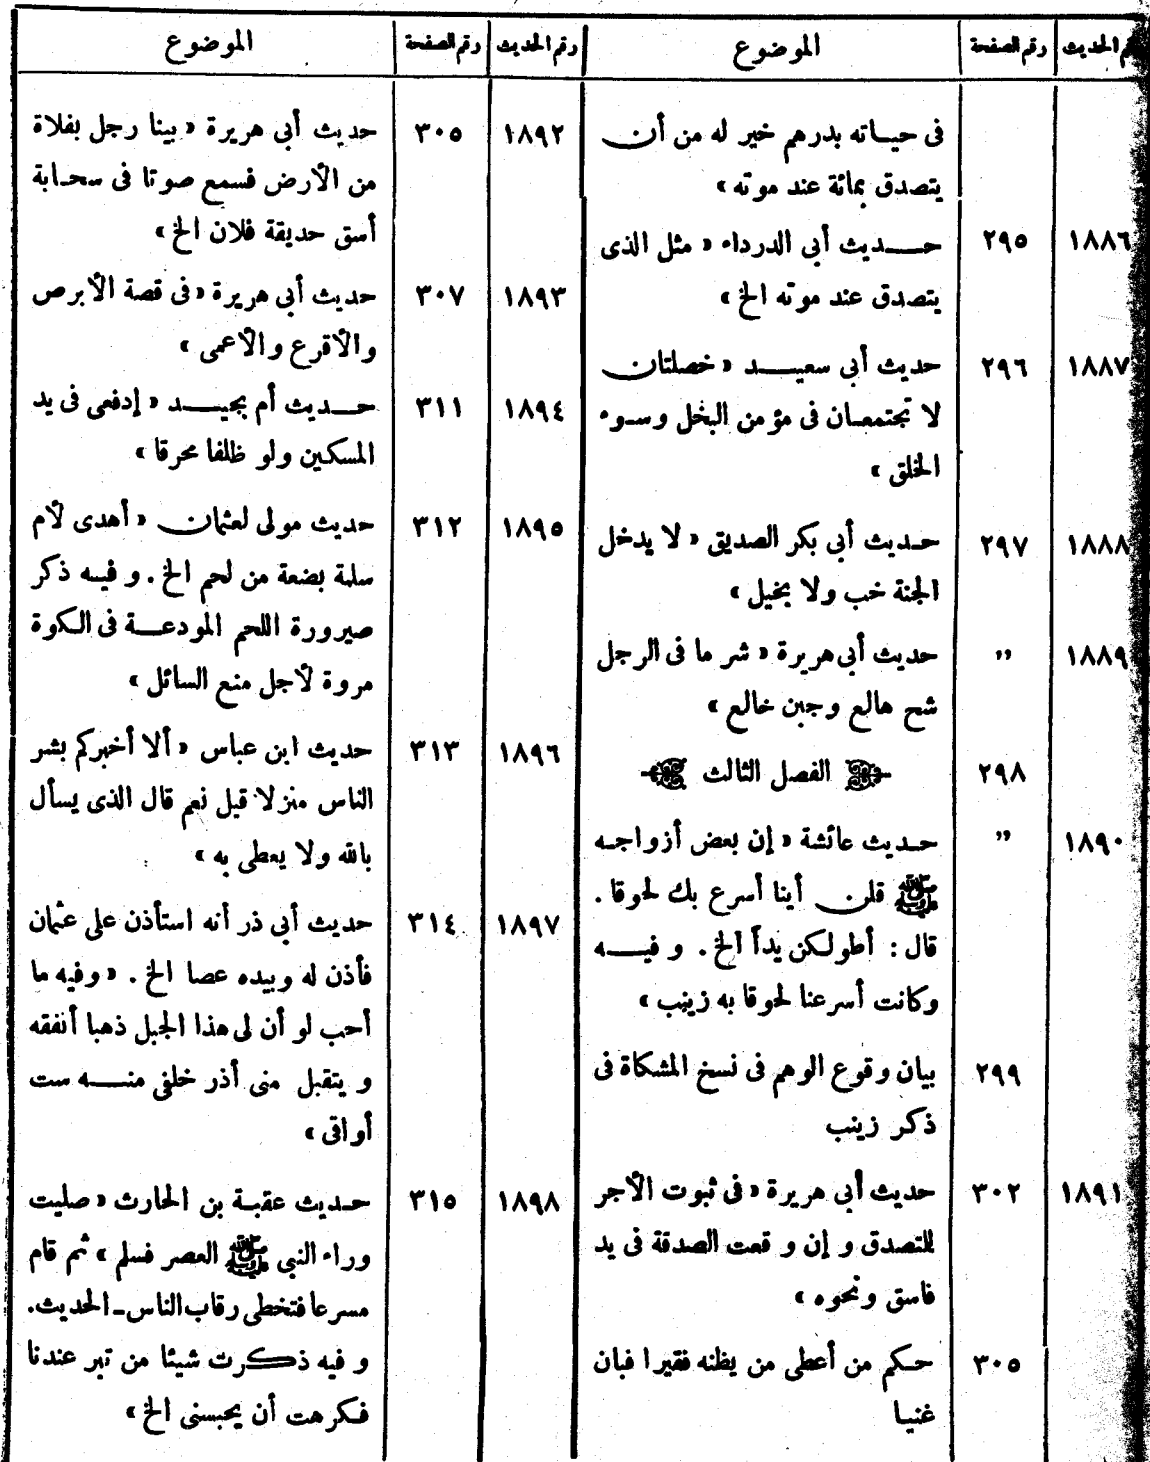 رقم الحديث رقم الصفحة الموضوع
فى حياته بدرهم خير له من أن
يتصدق بمائة عند موته »
١٨٨٦ ٢٩٥ حديث أبى الدرداء « مثل الذى
يتصدق عند موته الخ »
١٨٨٧ ٢٩٦ حديث أبى سعيد « خصلتان
لا تجتمعان فى مؤمن البخل وسوء
الخلق »
١٨٨٨ ٢٩٧ حديث أبى بكر الصديق « لا يدخل
الجنة خب ولا بخيل »
١٨٨٩ ,, حديث أبى هريرة « شر ما فى الرجل
شح هالع وجبن خالع »
٢٩٨ الفصل الثالث
١٨٩٠ ,, حديث عائشة « إن بعض أزواجه
ﷺ قلن أينا أسرع بك لحوقا .
قال : أطولكن يدأ الخ . و فيه
وكانت أسرعنا لحوقا به زينب »
٢٩٩ بيان وقوع الوهم فى نسخ المشكاة فى
ذكر زينب
١٨٩١ ٣٠٢ حديث أبى هريرة « فى ثبوت الأجر
للتصدق و إن و قعت الصدقة فى يد
فاسق ونحوه »
٣٠٥ حكم من أعطى من يظنه فقيرا فبان
غنيا
رقم الحديث رقم الصفحة الموضوع
١٨٩٢ ٣٠٥ حديث أبى هريرة « بينا رجل بفلاة
من الأرض فسمع صوتا فى سحابة
أسق حديقة فلان الخ »
١٨٩٣ ٣٠٧ حديث أبى هريرة « فى قصة الأبرص
والأقرع والأعمى »
١٨٩٤ ٣١١ حديث أم بجيد « إدفعى فى يد
المسكين ولو ظلفا محرقا »
١٨٩٥ ٣١٢ حديث مولى لعثمان « أهدى لأم
سلمة بضعة من لحم الخ . و فيه ذكر
صيرورة اللحم المودعة فى الكوة
مروة لأجل منع السائل »
١٨٩٦ ٣١٣ حديث ابن عباس « ألا أخبركم بشر
الناس منزلا قيل نعم قال الذى يسأل
بالله ولا يعطى به »
١٨٩٧ ٣١٤ حديث أبى ذر أنه استأذن على عثمان
فأذن له وبيده عصا الخ . « وفيه ما
أحب لو أن لى هذا الجبل ذهبا أنفقه
و يتقبل منى أذر خلفى منه ست
أواقى »
١٨٩٨ ٣١٥ حديث عقبة بن الحارث « صليت
وراء النبى ﷺ العصر فسلم » ثم قام
مسرعا فتخطى رقاب الناس ـ الحديث.
و فيه ذكرت شيئا من تبر عندنا
فكرهت أن يحبسنى الخ »